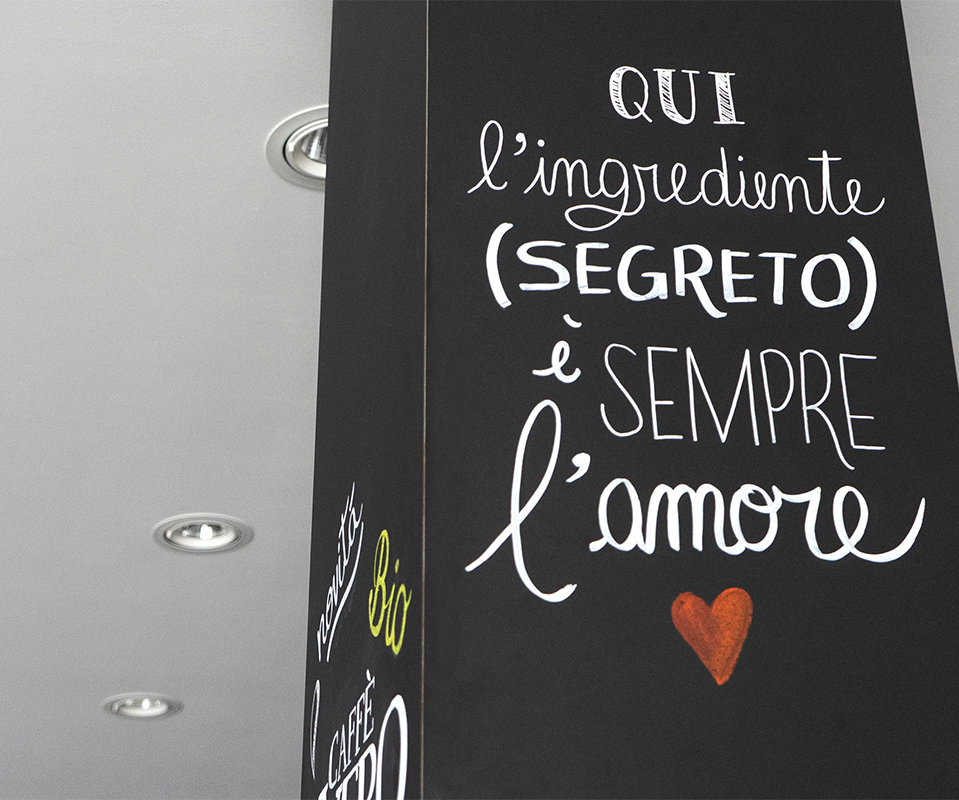 QUI
l'ingrediente
(SEGRETO)
è SEMPRE
l'amore
novità
Bio
CAFFÈ